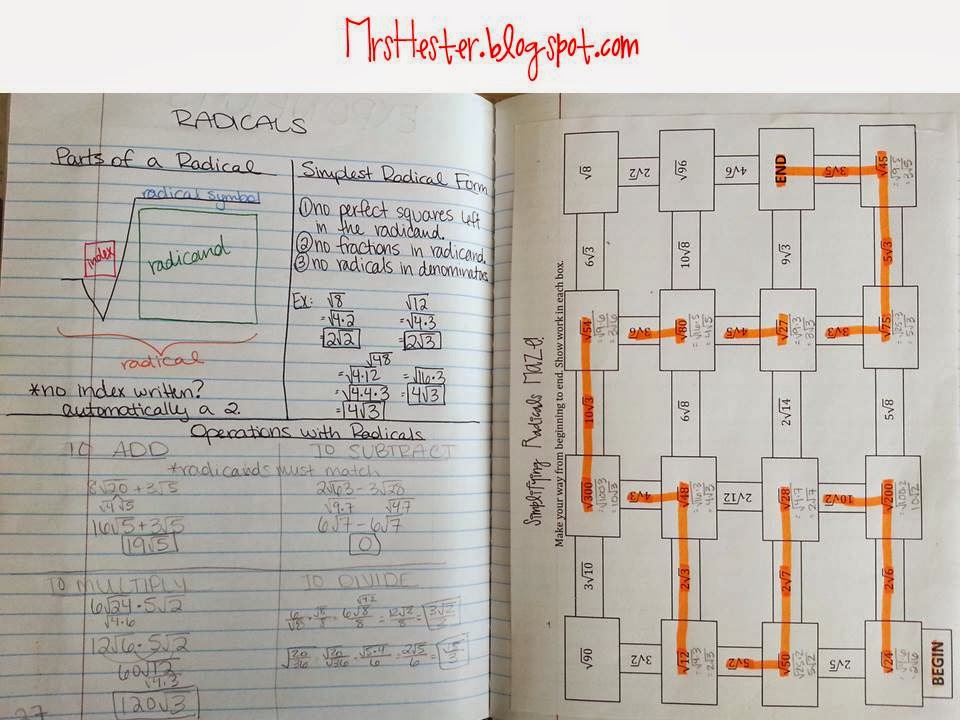 MrsHester.blogspot.com
RADICALS
Parts of a Radical
radical symbol
index
radicand
radical
*no index written?
automatically a 2.
Simplest Radical Form
①no perfect squares left
in the radicand.
②no fractions in radicand.
③no radicals in denominators
Ex: √8
=√4·2
=2√2
√12
=√4·3
=2√3
√48
=√4·12
=√4·4·3
=4√3
=√16·3
=4√3
Operations with Radicals
TO ADD
TO SUBTRACT
*radicands must match
8√20 + 3√5
√4√5
16√5 + 3√5
19√5
2√63 - 3√28
√9·7 √4·7
6√7 - 6√7
0
TO MULTIPLY
6√24 · 5√2
√4·6
12√6 · 5√2
60√12
√4·3
120√3
TO DIVIDE
27
Simplifying Radicals Maze!
Make your way from beginning to end. Show work in each box.
√8 2√2 √96 4√6 END 3√5 √45
=√9·5
=3√5
6√3 10√8 9√3 5√3
√54 3√6 √80 4√5 √27 3√3 √75
=√9·6
=3√6
=√16·5
=4√5
=√9·3
=3√3
=√25·3
=5√3
10√3 6√8 2√14 5√8
√300 4√3 √48 2√12 √28 10√2 √200
=√100·3
=10√3
=√16·3
=4√3
=√4·7
=2√7
=√100·2
10√2
3√10 2√3 2√7 2√6
√90 3√2 √12 5√2 √50 2√5 √24
=√4·3
=2√3
√25·2
5√2
=√4·6
=2√6
BEGIN